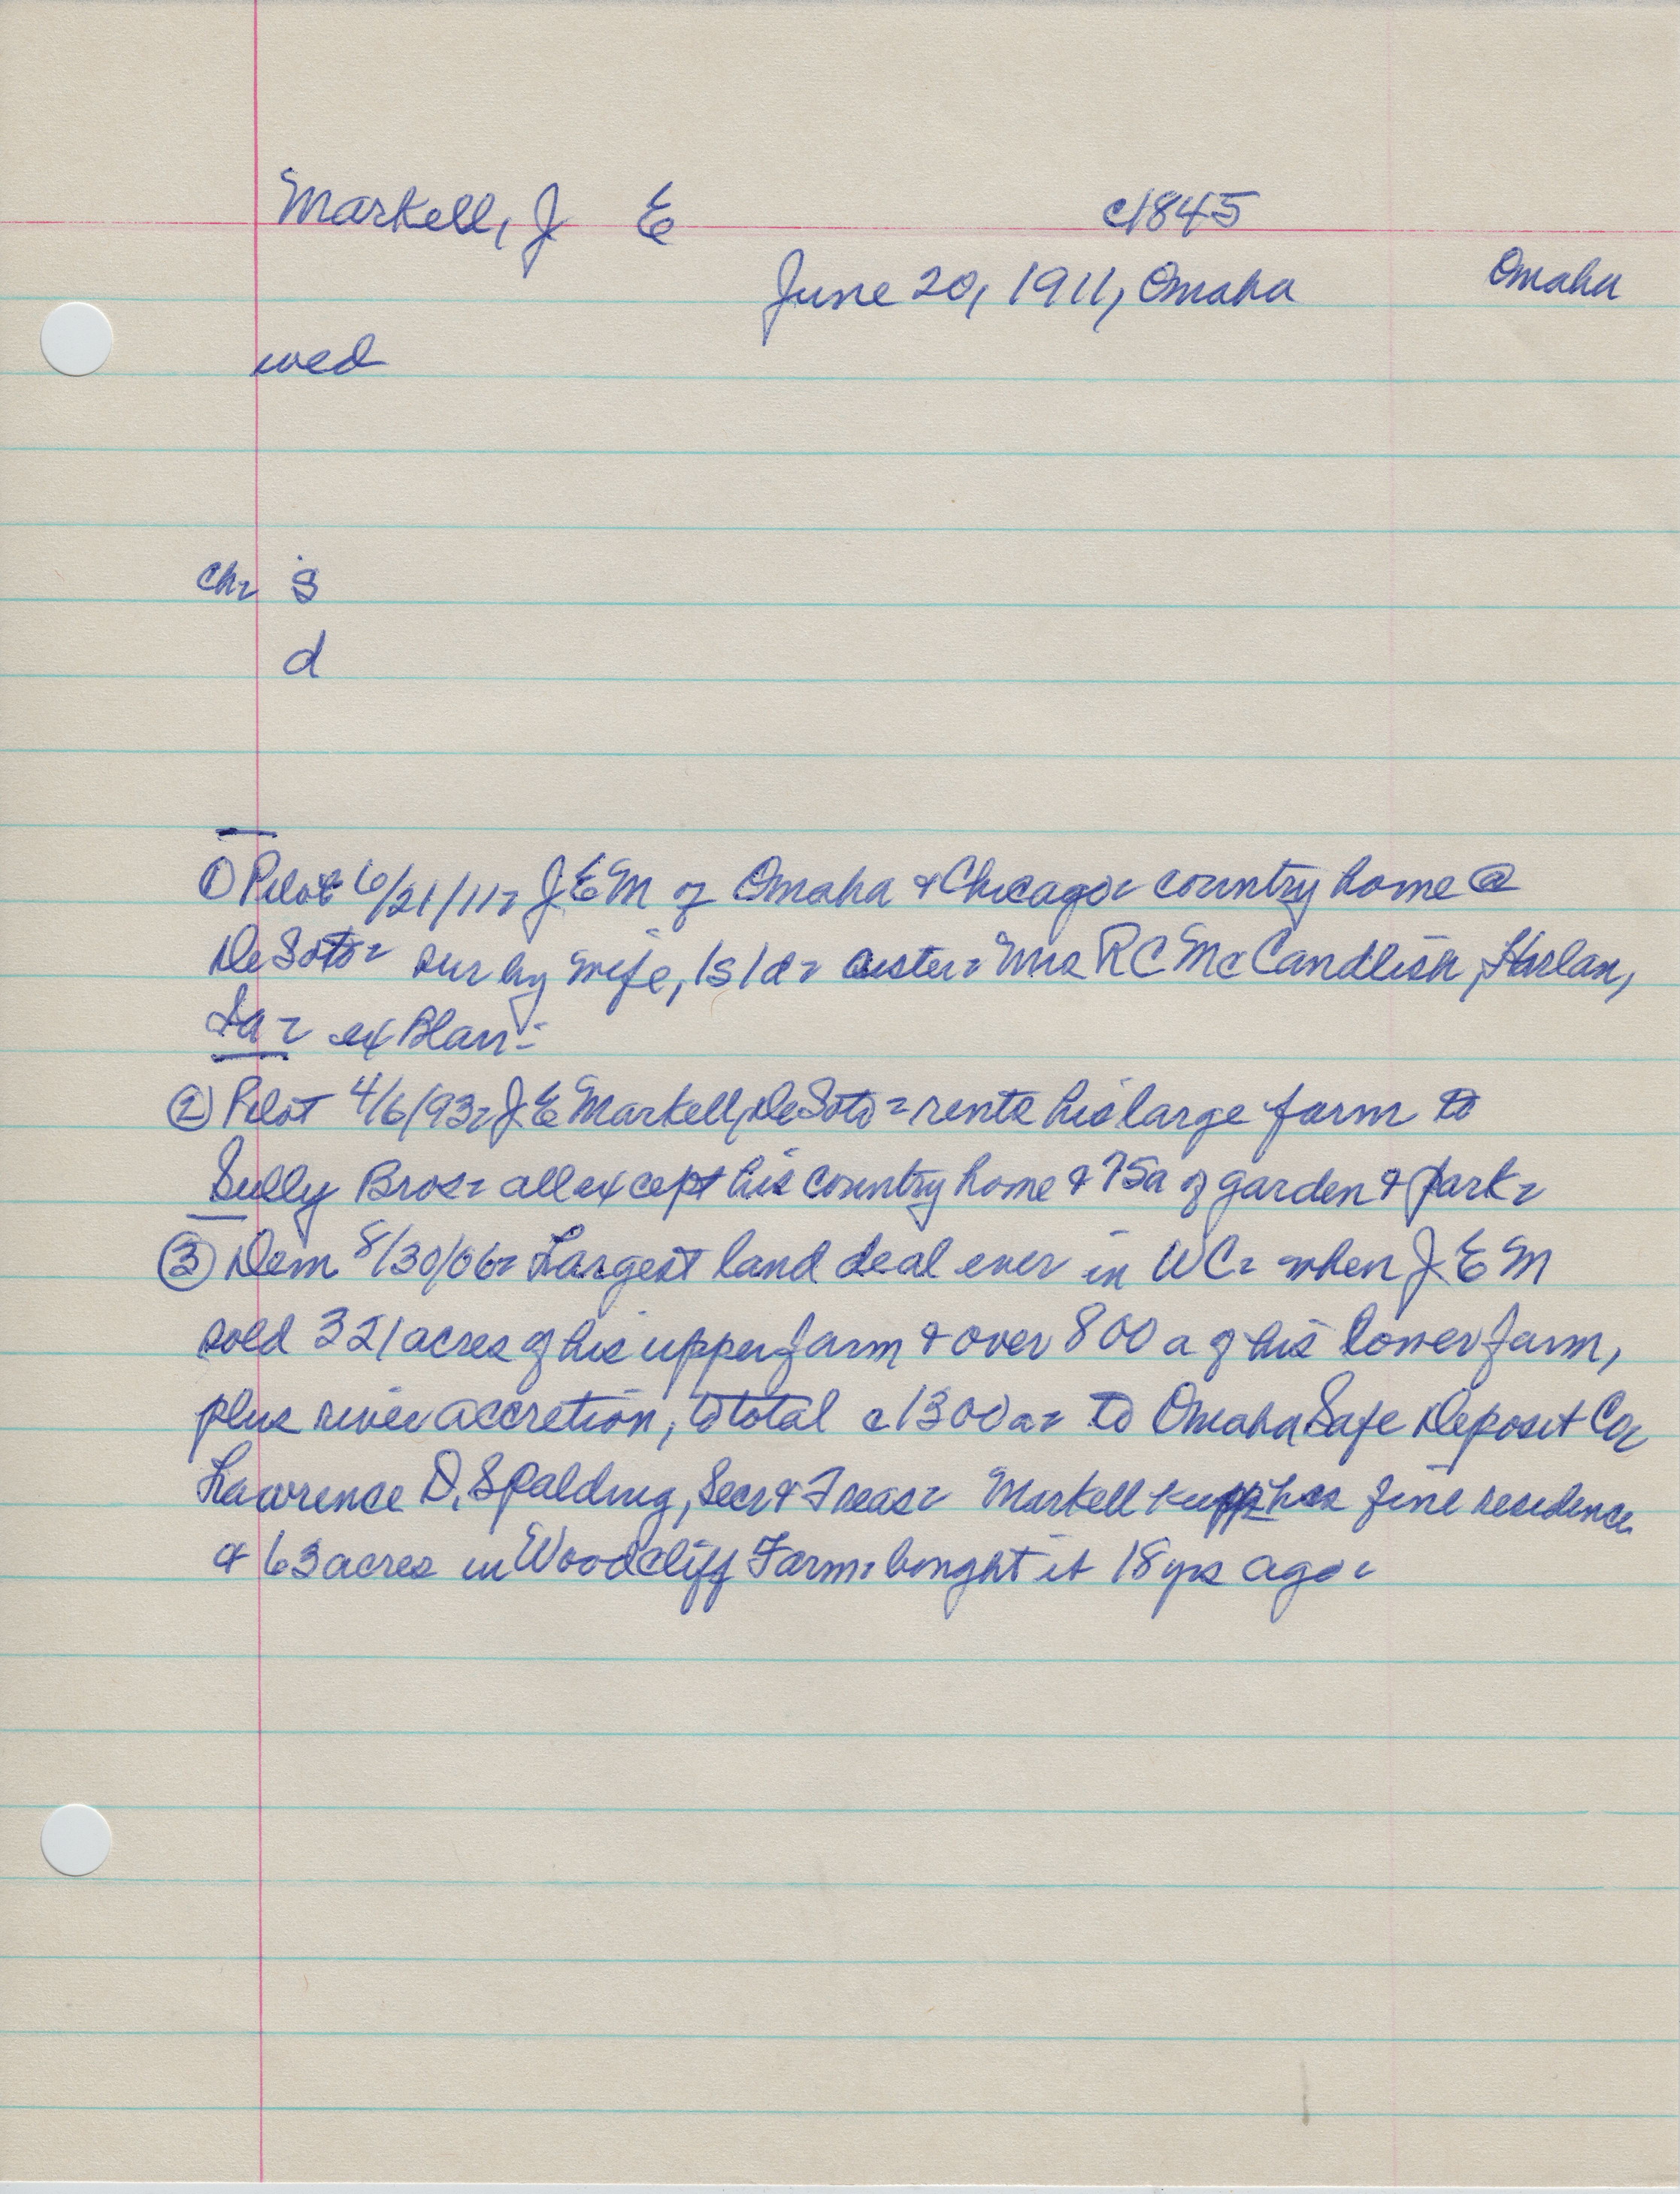 Markell, J E c1845
June 20, 1911, Omaha Omaha
wed
Ch= s
d
① Pilot 6/21/11= J E M of Omaha & Chicago= country home @
DeSoto= sur by wife, 1s 1d= sister= Mrs R C McCandlish, Harlan,
Ia= ex Blair=
② Pilot 4/6/93= J E Markell, DeSoto= rents his large farm to
Sully Bros= all except his country home & 75a of garden & park=
③ Dem 8/30/06= Largest land deal ever in WC= when J E M
sold 321 acres of his upper farm & over 800 a of his lower farm,
plus river accretion, to total c1300a= to Omaha Safe Deposit Co=
Lawrence D. Spalding, Secr & Treas= Markell his fine residence
& 63 acres in Woodcliff Farm= bought it 18 yrs ago=